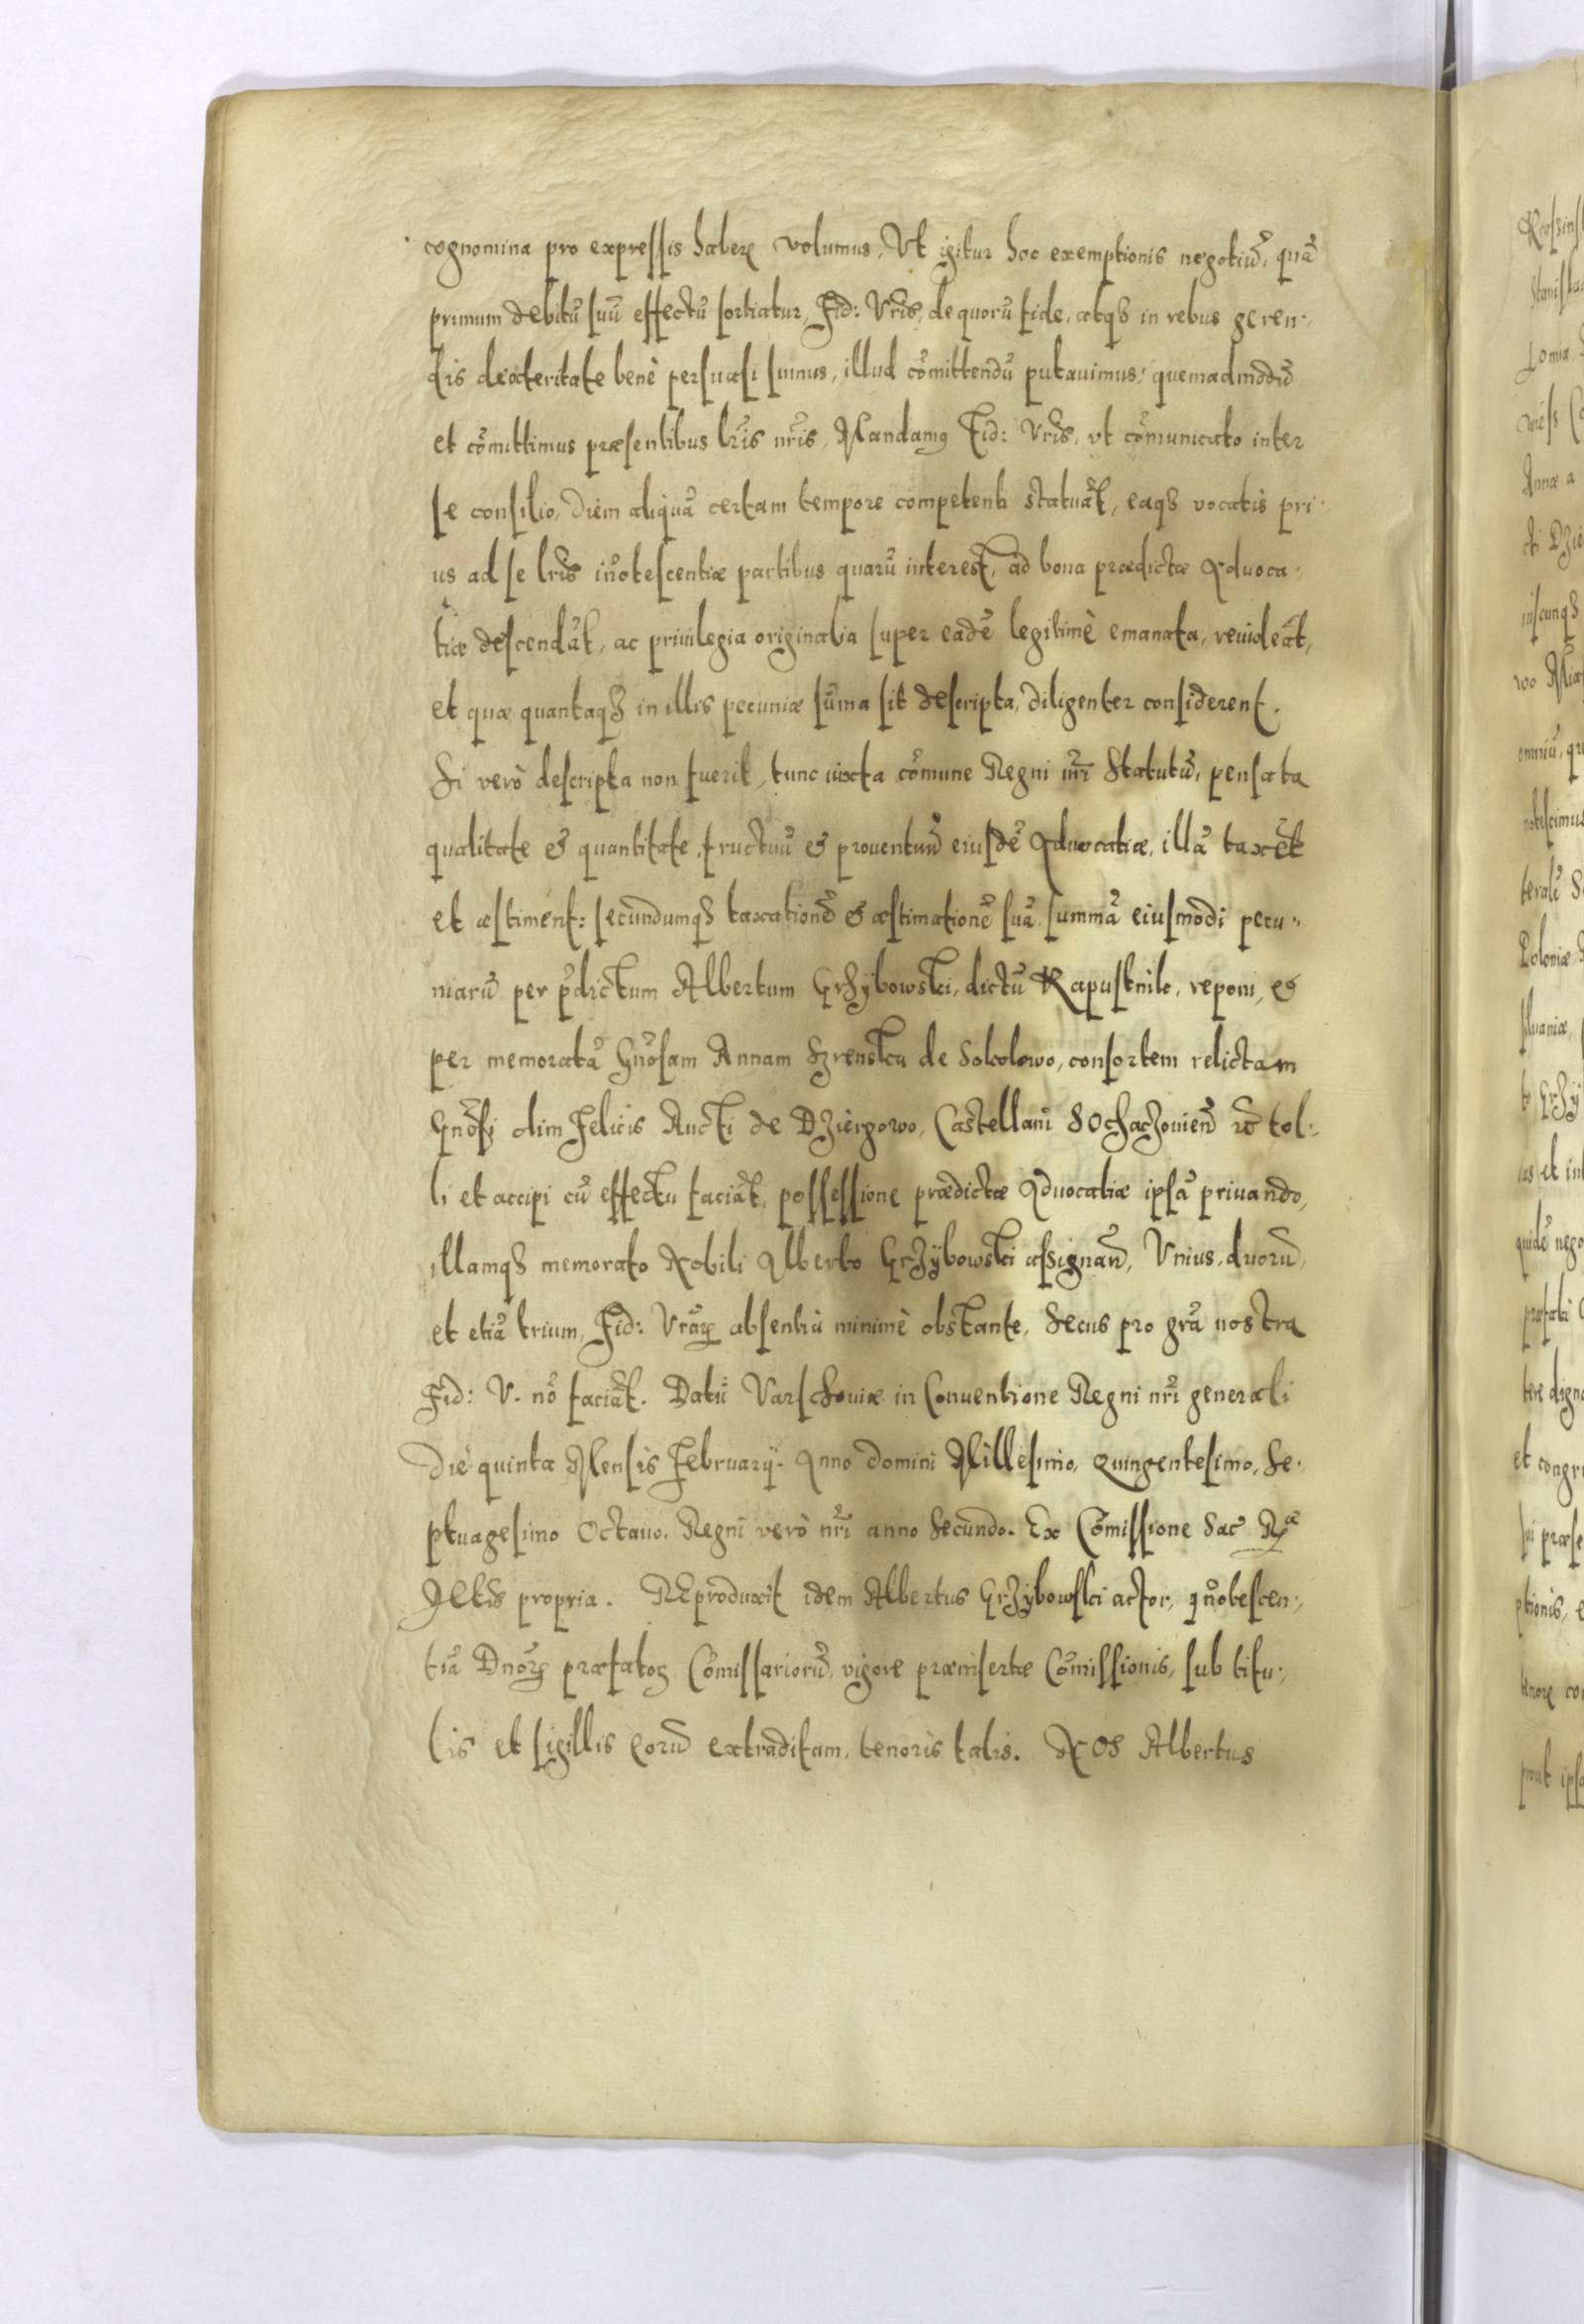 cognomina pro expressis habere volumus, Vt igitur hoc exemptionis negotiũ, quã
primum debitũ suũ effectũ sortiatur, Fid: Vrĩs, de quorũ fide, atqȝ in rebus geren-
dis dexteritate benè persuasi sumus, illud cõmittendũ putauimus: quemadmodũ
et cõmittimus præsentibus lrĩs nrĩs, Mandamꝰ Fid: Vrĩs, vt cõmunicato inter
se consilio, diem aliquã certam tempore competenti statuãt, eaqȝ vocatis pri-
us ad se lrĩs iñotescentiæ partibus quarũ interest, ad bona prædictæ Aduoca-
tiæ descendãt, ac priuilegia originalia super eadẽ legitimè emanata, reuideãt,
et quæ quantaqȝ in illis pecuniæ sũma sit descripta, diligenter considerent.
Si verò descripta non fuerit, tunc iuxta cõmune Regni nrĩ Statutũ, pensata
qualitate & quantitate, fructuũ & prouentuũ eiusdẽ Aduocatiæ, illã taxẽt
et æstiment: secundumqȝ taxationẽ & æstimationẽ suã, summã eiusmodi pecu-
niarũ per p̃dictum Albertum Grzÿbowski, dictũ Kapustnik, reponi, &
per memoratã Gñosam Annam Szrenska de Sokolowo, consortem relictam
Gñosi olim Felicis Aucti de Dzierzgowo, Castellani Sochaczouieñ &c̃ tol-
li et accipi cũ effectu faciãt, possessione prædictæ Aduocatiæ ipsã priuando,
illamqȝ memorato Nobili Alberto Grzÿbowski assignañ, Vnius, duorũ,
et etiã trium, Fid: Vrãꝝ absentia minimè obstante, Secus pro grã nostra
Fid: V. nõ faciãt. Datũ Varschouiæ in Conuentione Regni nrĩ generali
die quinta Mensis Februarÿ. Anno domini Millesimo, Quingentesimo, Se-
ptuagesimo Octauo. Regni verò nrĩ anno Secundo. Ex Cõmissione Sac̃ Rᵃᵉ
Mttis propria. REproduxit idem Albertus Grzÿbowski actor, iñotescen-
tiã Dnõꝝ præfatoꝝ Cõmissariorũ, vigore præinsertæ Cõmissionis, sub titu-
lis et sigillis eorũ extraditam, tenoris talis. NOS Albertus